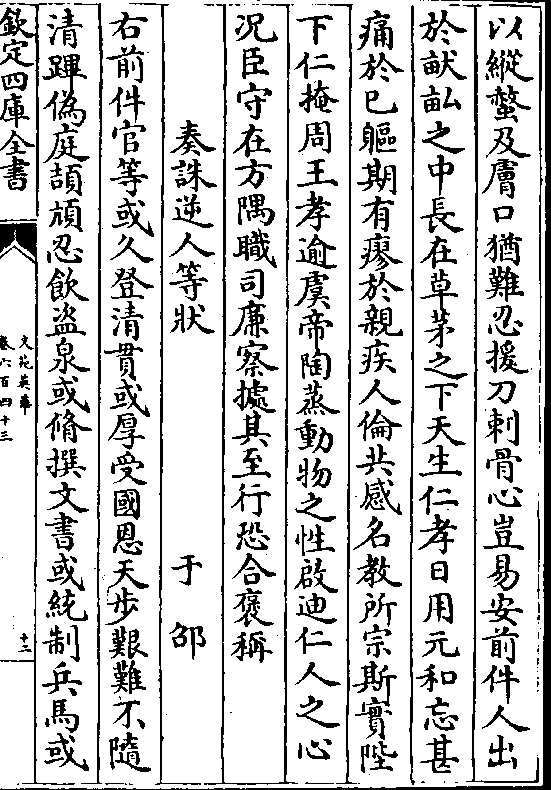 以縱螫及膚口猶難忍援刀刺骨心豈易安前件人出
於畎畝之中長在草茅之下天生仁孝日用元和忘甚
痛於己軀期有瘳於親疾人倫共感名教所宗斯實陛
下仁掩周王孝逾虞帝陶蒸動物之性啟迪仁人之心
况臣守在方隅職司廉察據其至行恐合褒稱
奏誅逆人等狀 于邵
右前件官等或久登清貫或厚受國恩天步艱難不隨
清蹕偽庭頡頏忍飲盗泉或脩撰文書或統制兵馬或
欽定四庫全書
文苑英華
卷六百四十三
十二